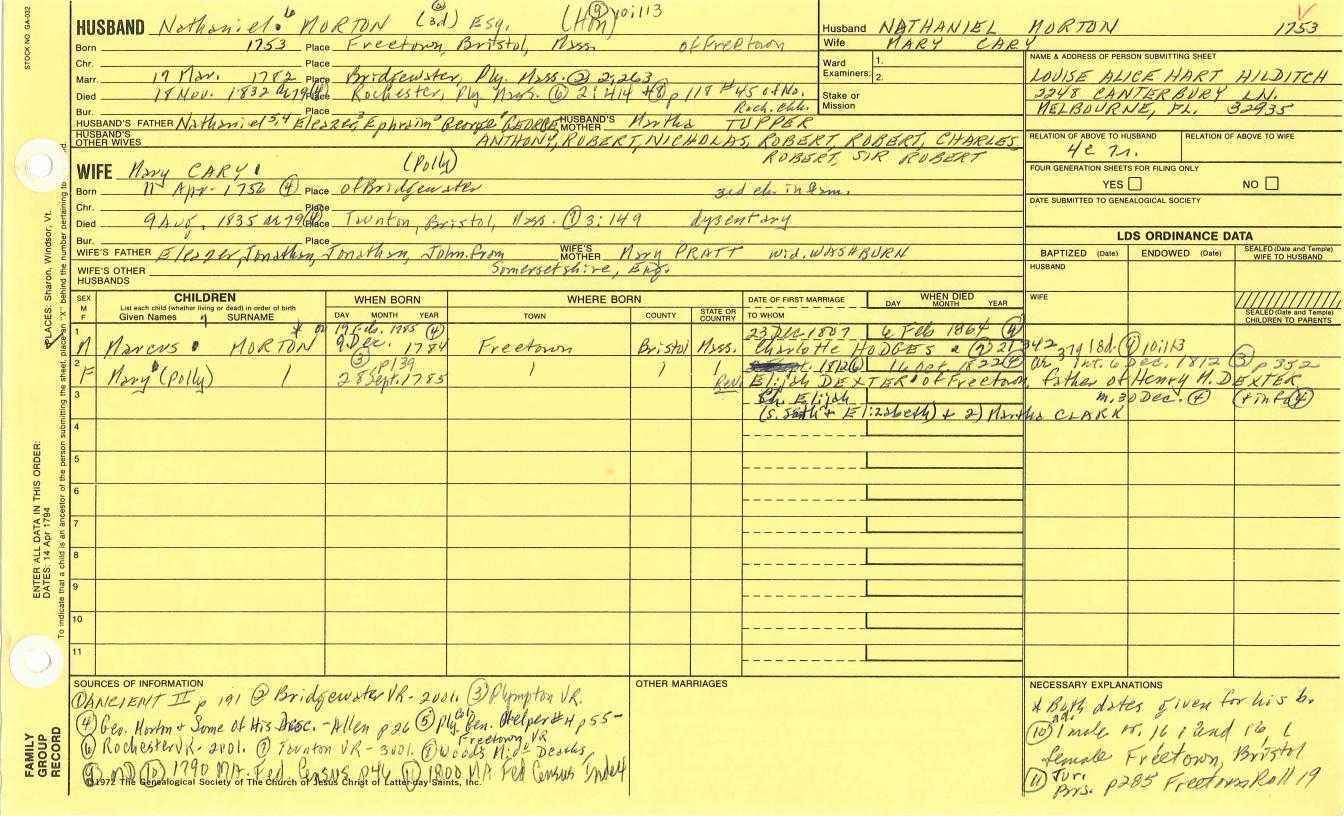 STOCK NO. GA-032
HUSBAND Nathaniel⁶ MORTON (3d) Esq. (Hon) ⑨ 10i113
Born 1753 Place Freetown, Bristol, Mass. of Freetown
Chr. Place
Marr. 17 Mar. 1782 Place Bridgewater, Ply. Mass. ② 2:263
Died 18 Nov. 1832 ae 79 Place Rochester, Ply Mass. ⑥ 2:414 + ⑧ p 118 #45 of No. Roch. Chh.
Bur. Place
HUSBAND'S FATHER Nathaniel⁵,⁴ Eleazer³ Ephraim² George¹ GEORGE HUSBAND'S MOTHER Martha TUPPER
HUSBAND'S OTHER WIVES ANTHONY, ROBERT, NICHOLAS, ROBERT, ROBERT, CHARLES
ROBERT, SIR ROBERT
WIFE Mary CARY (Polly)
Born 11 Apr. 1756 ④ Place of Bridgewater 3rd ch in fam.
Chr. Place
Died 9 Aug. 1835 ae 79 ④ Place Taunton, Bristol, Mass. ⑦ 3:149 dysentary
Bur. Place
WIFE'S FATHER Eleazer, Jonathan, Jonathan, John from WIFE'S MOTHER Mary PRATT wid. WASHBURN
Somersetshire, Eng.
WIFE'S OTHER HUSBANDS
Husband NATHANIEL MORTON 1753
Wife MARY CARY
Ward Examiners: 1.
2.
Stake or Mission
NAME & ADDRESS OF PERSON SUBMITTING SHEET
LOUISE ALICE HART HILDITCH
2248 CANTERBURY LN.
MELBOURNE, FL. 32935
RELATION OF ABOVE TO HUSBAND RELATION OF ABOVE TO WIFE
4c 7r.
FOUR GENERATION SHEETS FOR FILING ONLY
YES NO
DATE SUBMITTED TO GENEALOGICAL SOCIETY
LDS ORDINANCE DATA
BAPTIZED (Date) ENDOWED (Date) SEALED (Date and Temple) WIFE TO HUSBAND
HUSBAND
WIFE
SEALED (Date and Temple) CHILDREN TO PARENTS
SEX M F
CHILDREN
List each child (whether living or dead) in order of birth
Given Names SURNAME
WHEN BORN
DAY MONTH YEAR
WHERE BORN
TOWN COUNTY STATE OR COUNTRY
DATE OF FIRST MARRIAGE
TO WHOM
WHEN DIED
DAY MONTH YEAR
* or 19 Feb. 1785 ④ 23 Dec 1807 6 Feb 1864 ④
1 M Marcus MORTON 9 Dec. 1784 Freetown Bristol Mass. Charlotte HODGES ⑨ 10i113
③ p139 1812 ⑥ 1822 ④ Int. 6 Dec. 1812 ③ p352
2 F Mary (Polly) 28 Sept. 1785 Rev. Elijah DEXTER of Freetown, father of Henry M. DEXTER
m. 30 Dec. ④ (+ info ④)
3 Elijah
(s. Seth + Elizabeth) + 2) Martha CLARK
4
5
6
7
8
9
10
11
SOURCES OF INFORMATION
① ANCIENT II p 191 ② Bridgewater VR- 2001. ③ Plympton VR.
④ Geo. Morton + Some of His Desc. - Allen p26 ⑤ Ply Col. Gen. Helper #4 p55-
Freetown VR
⑥ Rochester VR- 2001. ⑦ Taunton VR- 3001. ⑧ Woods Mid. Deaths,
⑨ MD ⑩ 1790 MA. Fed Census p46 ⑪ 1800 MA Fed Census Index
©1972 The Genealogical Society of The Church of Jesus Christ of Latter-day Saints, Inc.
OTHER MARRIAGES
NECESSARY EXPLANATIONS
* Both dates given for his b.
⑩ 1 male ov. 16, 1 und 16, 1
female Freetown, Bristol
⑪ p285 Freetown Roll 19
PLACES: Sharon, Windsor, Vt.
ENTER ALL DATA IN THIS ORDER:
DATES: 14 Apr 1794
To indicate that a child is an ancestor of the person submitting the sheet, place an "X" behind the number pertaining to
FAMILY GROUP RECORD